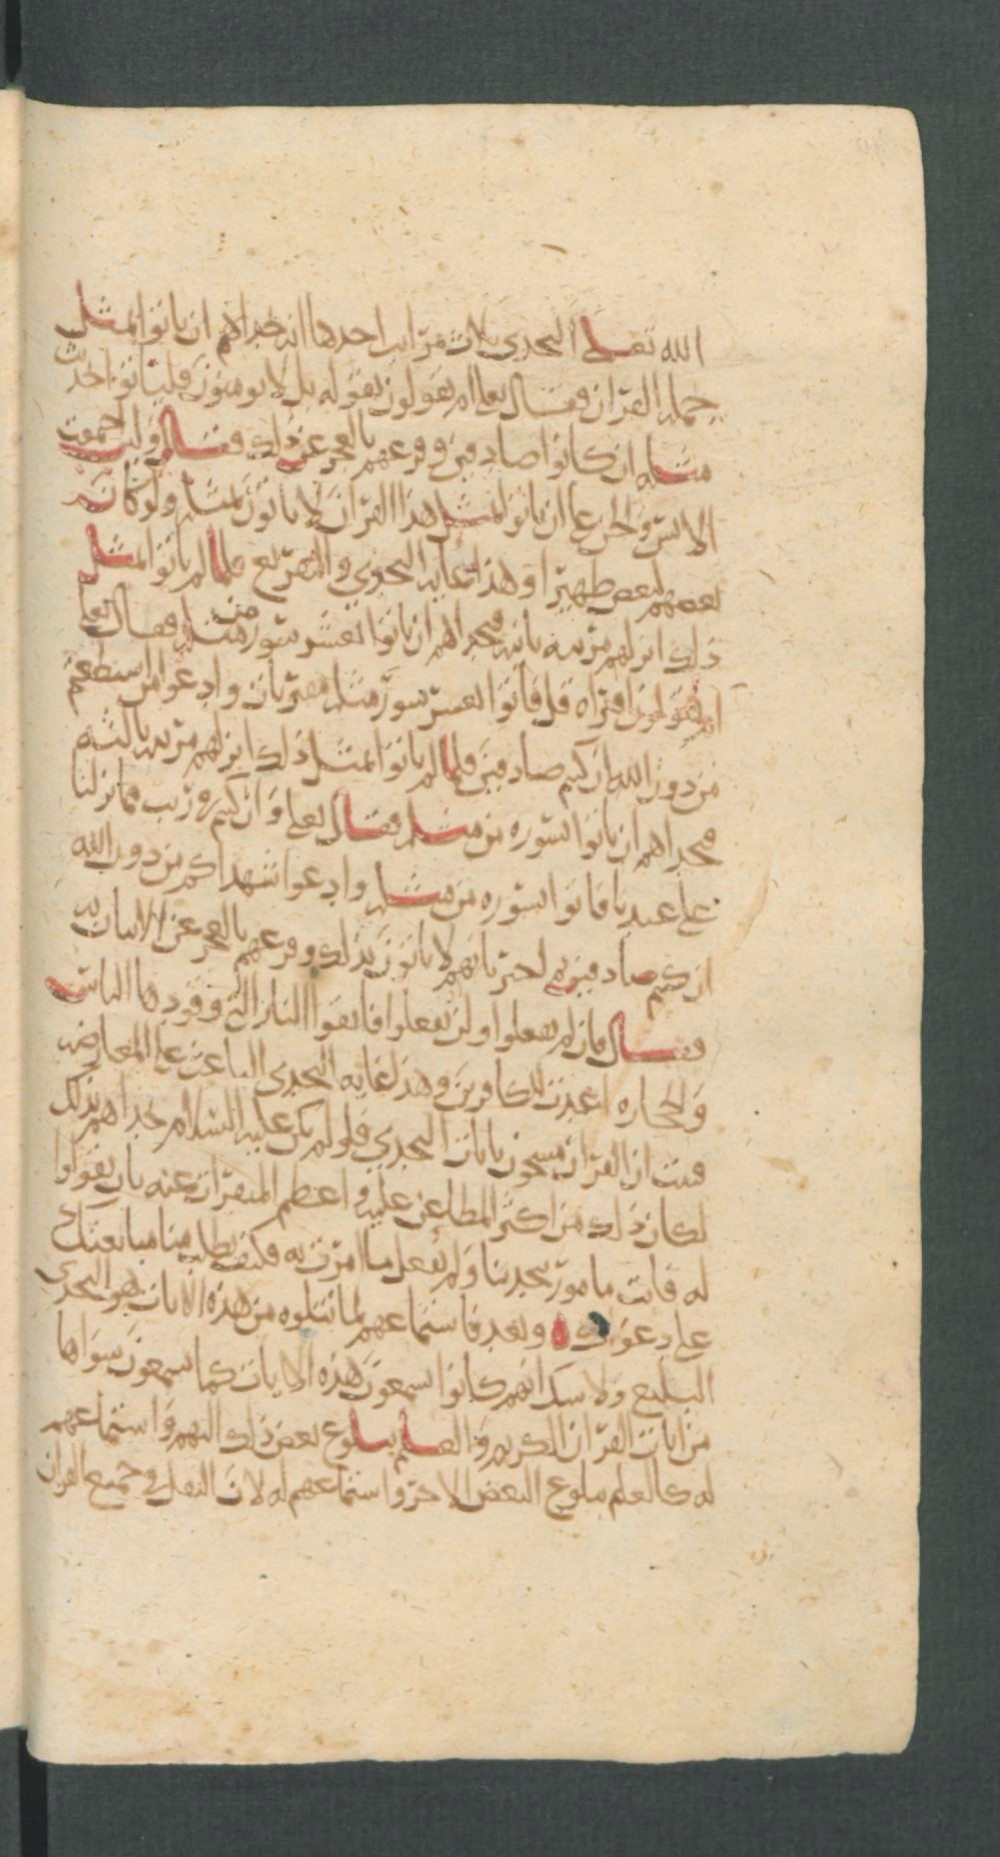 الله تعالى التحدي ثلاث مراتب احدها انه تحداهم ان ياتوا بمثل
جملة القران فقال تعالى ام يقولون تقوله بل لا يومنون فلياتوا بحديث
مثله ان كانوا صادقين وقرعهم بالعجز عن ذلك فقال قل لين اجتمعت
الانس والجن على ان ياتوا بمثل هذا القران لا ياتون بمثله ولو كان
بعضهم لبعض ظهيرا وهذا غاية التحدي والتقريع فلما لم ياتوا بمثل
ذلك انزلهم مرتبه ثانيه فتحداهم ان ياتوا بعشر سور من مثله فقال تعالى
ام يقولون افتراه قل فاتوا بعشر سور مثله مفتريات وادعوا من استطعتم
من دون الله ان كنتم صادقين فلما لم ياتوا بمثل ذلك انزلهم مرتبه ثالثه
فتحداهم ان ياتوا بسوره من مثله فقال تعالى وان كنتم في ريب مما نزلنا
على عبدنا فاتوا بسوره من مثله وادعوا شهداكم من دون الله
ان كنتم صادقين ثم اخبر بانهم لا ياتون بذلك وقرعهم بالعجز عن الاتيان به
فقال فان لم تفعلوا ولن تفعلوا فاتقوا النار التي وقودها الناس
والحجاره اعدت للكافرين وهذا غايه التحدي الباعث على المعارضه
فثبت ان القران مشحون بايات التحدي فلو لم يكن عليه السلام تحداهم بذلك
لكان ذلك من اكثر المطاعن عليه واعظم المنفرات عنه بان يقولوا
له فانت مامور بتحدينا ولم تفعل ما امرت به فكيف تطلب منا متابعتك
على دعواك ه وبعد فاستماعهم لما تتلوه من هذه الايات هو التحدي
البليغ ولا شك انهم كانوا يسمعون هذه الايات كما يسمعون سواها
من ايات القران الكريم والعلم ببلوغ بعض ذلك اليهم واستماعهم
له كالعلم ببلوغ البعض الاخر واستماعهم له لان النقل في جميع القران